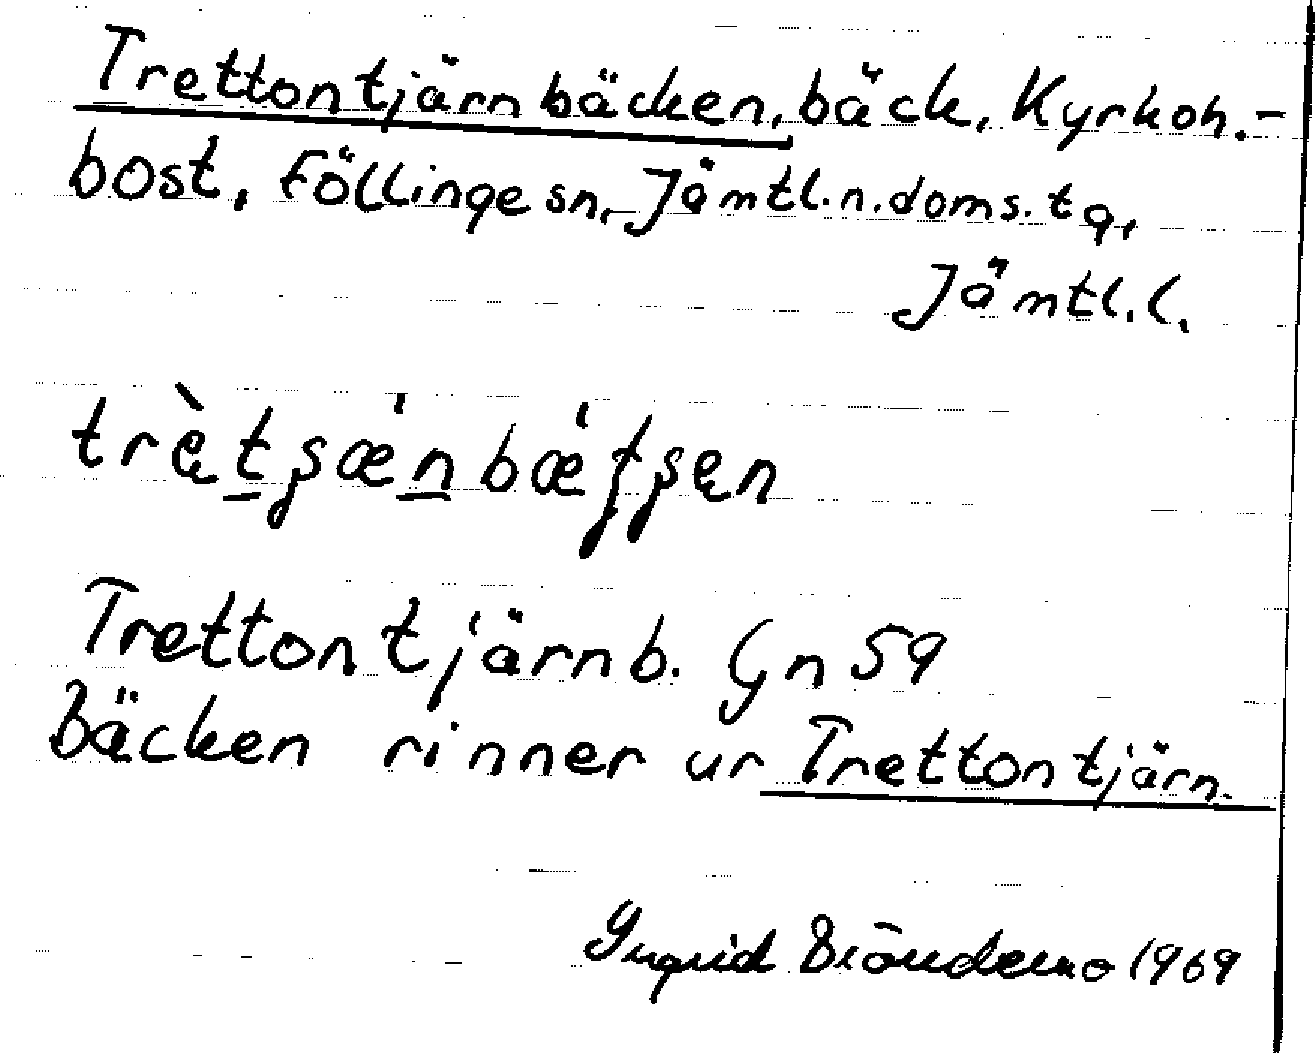 Trettontjärnbäcken, bäck, Kyrkoh.-
bost, Föllinge sn, Jämtl. n. doms. tg,
Jämtl. l.
Trettontjärnb. Gn 59
Bäcken rinner ur Trettontjärn.
Ingrid Brändemo 1969